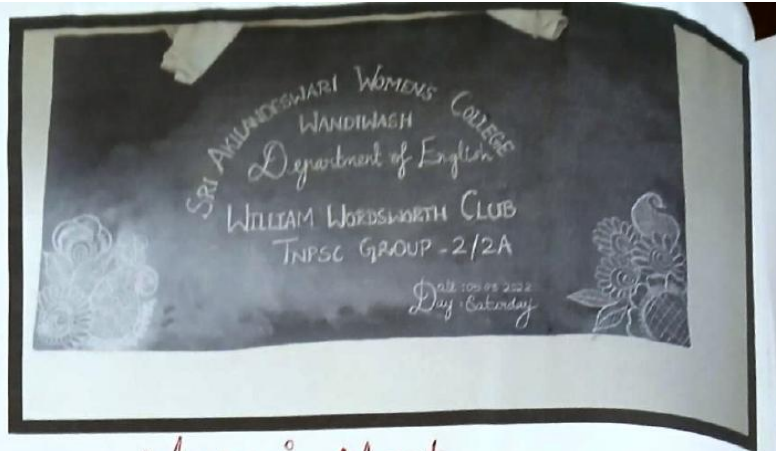 SRI AKILANDESWARI WOMENS COLLEGE
WANDIWASH
Department of English
WILLIAM WORDSWORTH CLUB
TNPSC GROUP - 2/2A
Date : 2022
Day : Saturday